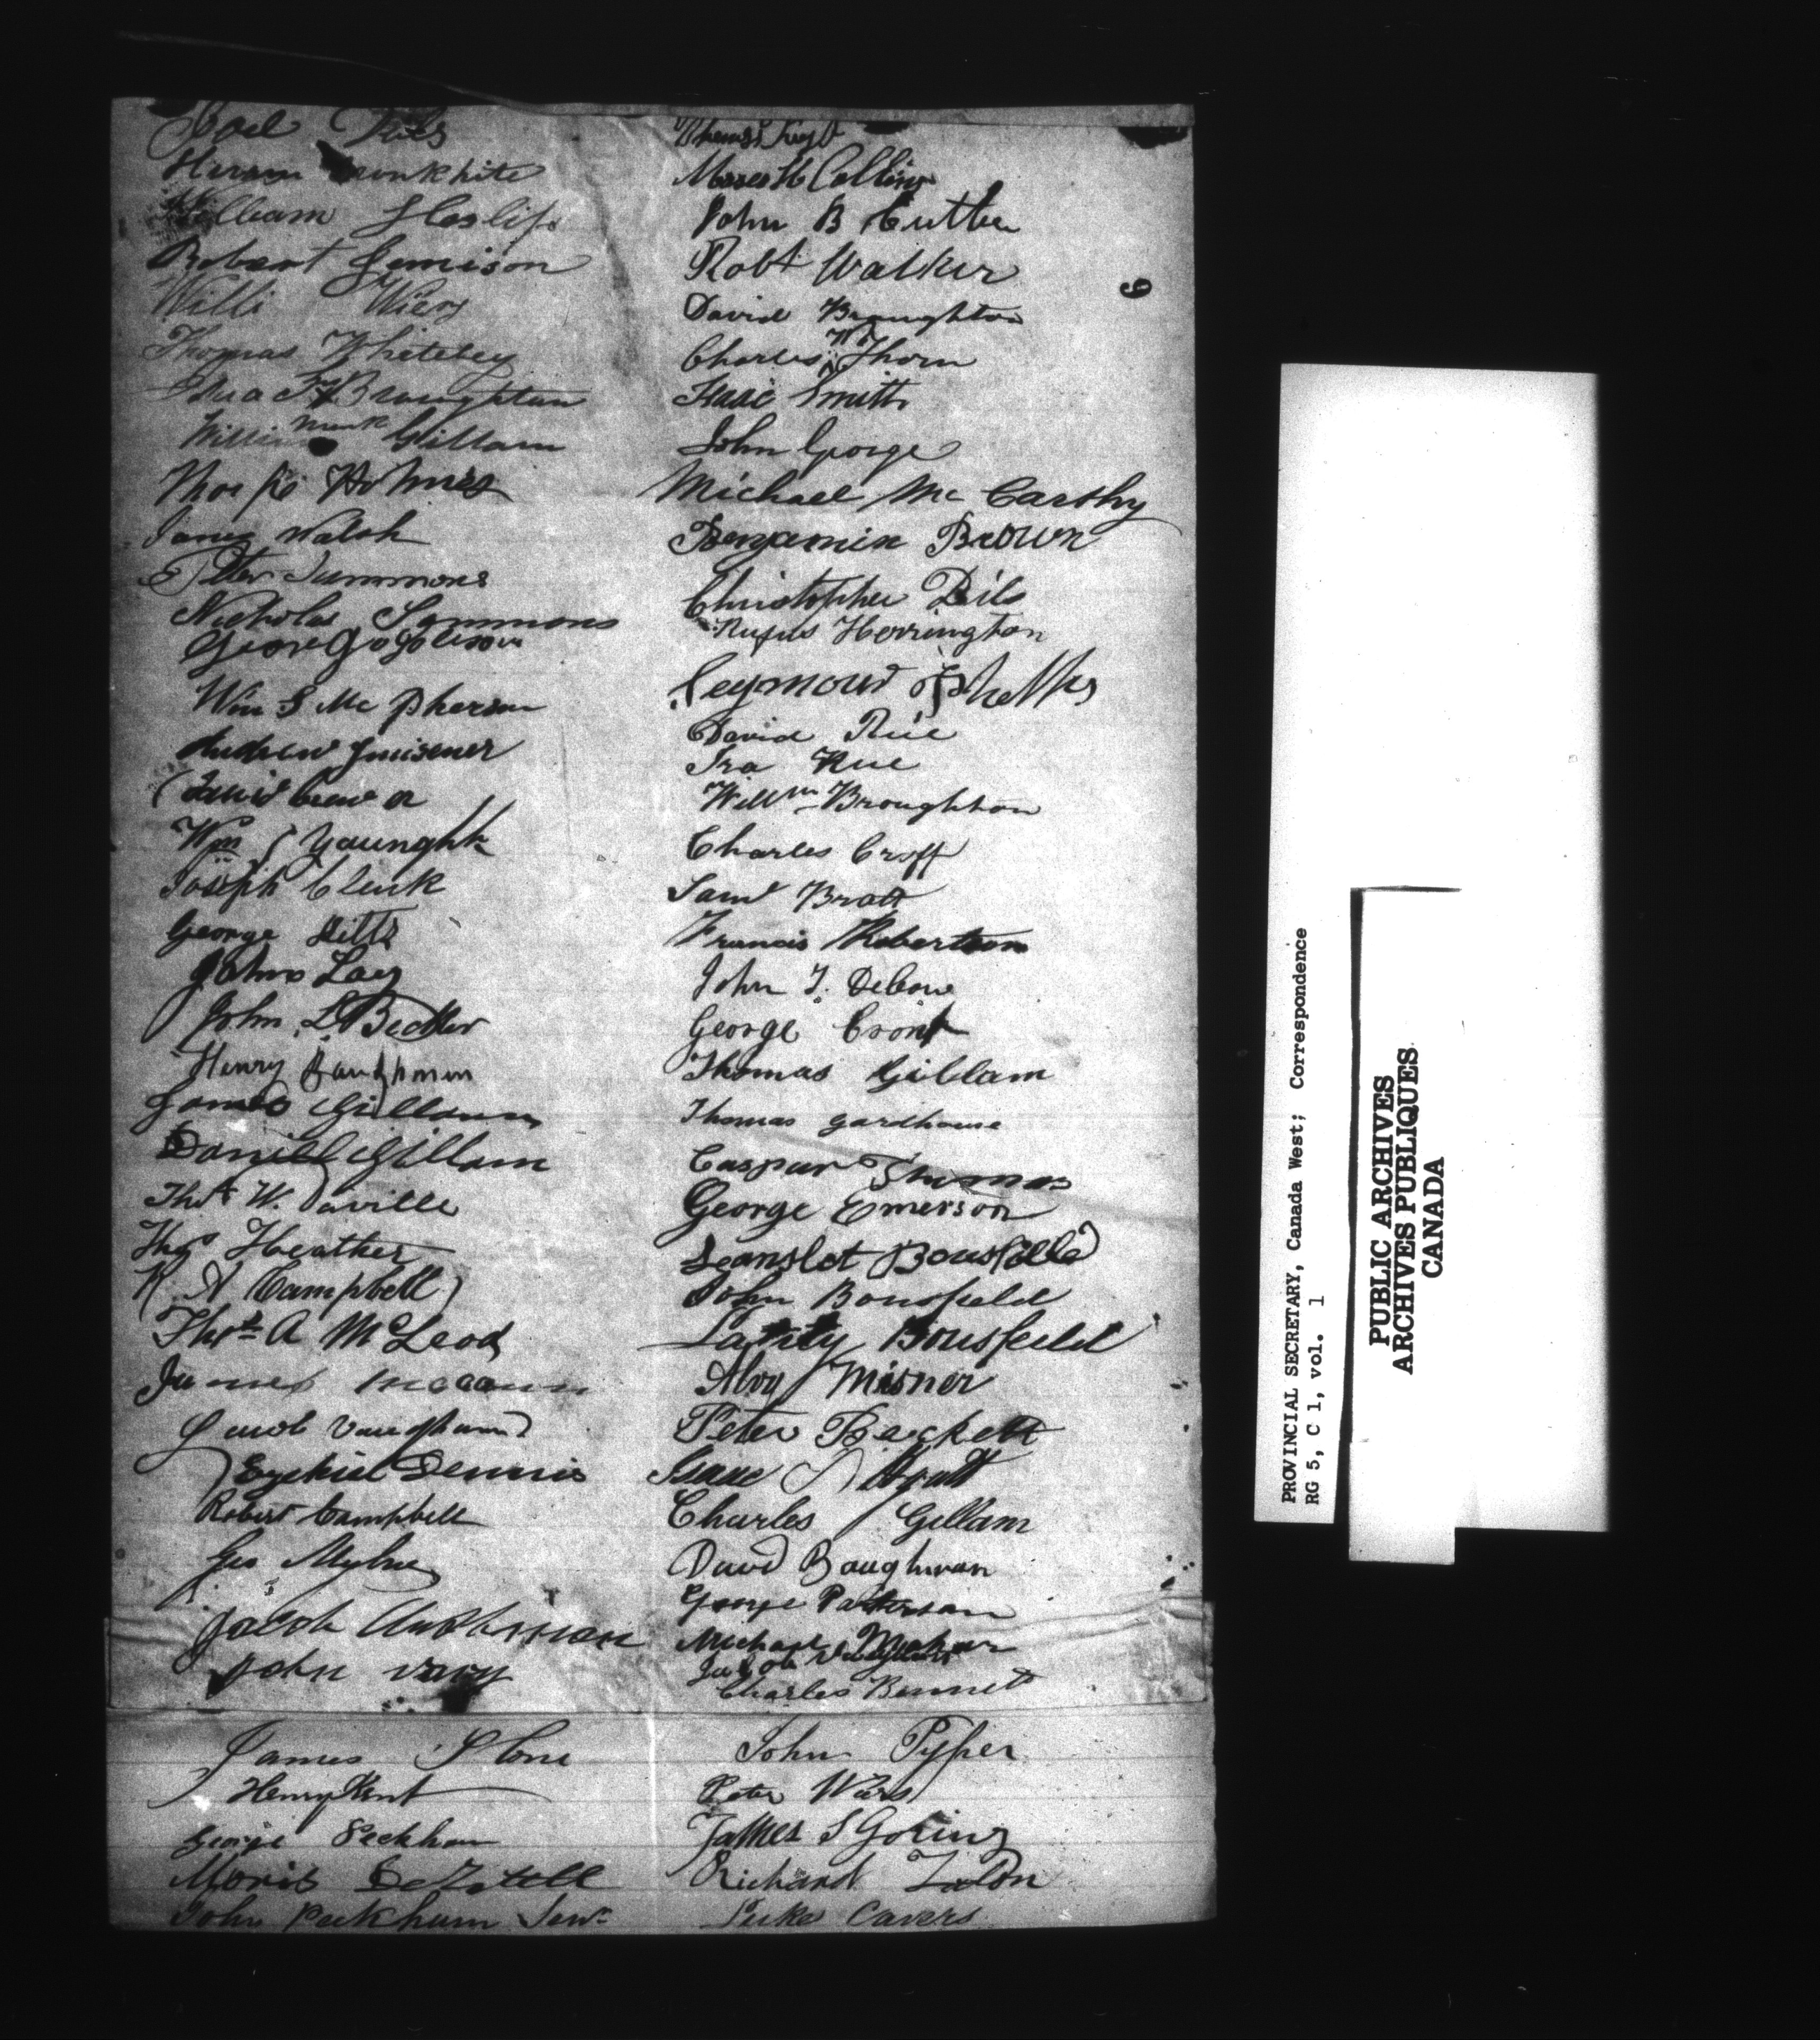 Hiram
William Heslip
Robert Jemison
Willi Wiers
Thomas Whiteley
Broughton
William Gillam
Holmes
James Walsh
Peter Summons
Nicholas Sommons
George
Wm S McPherson
Andrew
David
Wm Younghk
Joseph Clenk
George Ditts
John Laey
John L Becker
Henry Baughman
James Gillam
Daniel Gillam
Thos W. Daville
Thos Heather
R. A Campbell
Thos A McLeod
James McCann
Jacob Vaughan
Ezekiel Dennis
Robert Campbell
Geo Mylne
Jacob
John Vary
James Stone
Henry Kent
George Peckham
Moris DeZtell
John Peckham Senr
Thomas
Moses H Collins
John B Cutler
Robt Walker
David Broughton
Charles W Thorn
Isaac Smith
John George
Michael McCarthy
Benjamin Brown
Christopher Dils
Rufus Herrington
Seymour Phelps
David Rue
Ira Rue
Willm Broughton
Charles Croff
Saml Bratt
Francis Robertson
John T. Debow
George Cronk
Thomas Gillam
Thomas Gardhouse
Caspar
George Emerson
Leanslet Bousfield
John Bousfield
Bousfield
Alvy Misner
Peter Beckett
Isaac Bratt
Charles Gillam
David Baughman
George Patterson
Michael Mahar
Jacob
Charles Bennet
John Pyper
Peter Wiers
James S Goring
Richard
Luke Cavers
6
PROVINCIAL SECRETARY, Canada West; Correspondence
RG 5, C 1, vol. 1
PUBLIC ARCHIVES
ARCHIVES PUBLIQUES
CANADA